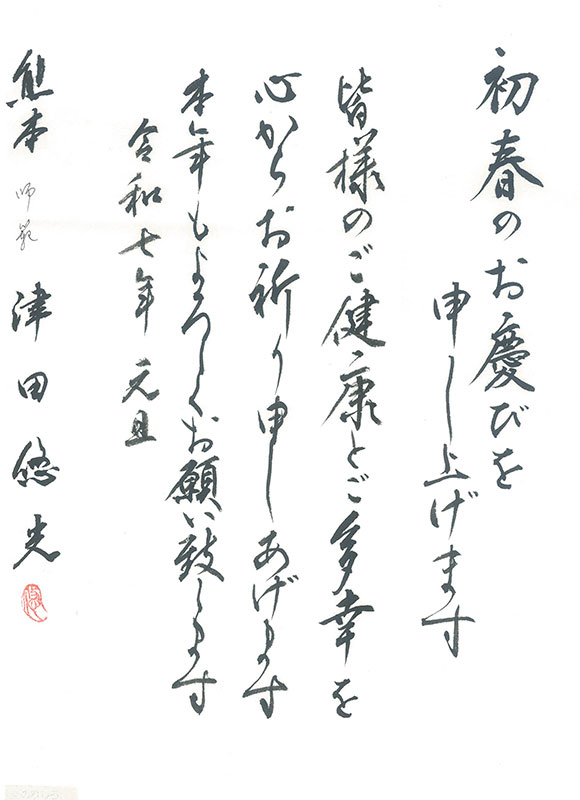 初春のお慶びを
申し上げます
皆様のご健康とご多幸を
心からお祈り申しあげます
本年もよろしくお願い致します
令和七年 元旦
熊本 師範 津田悠光